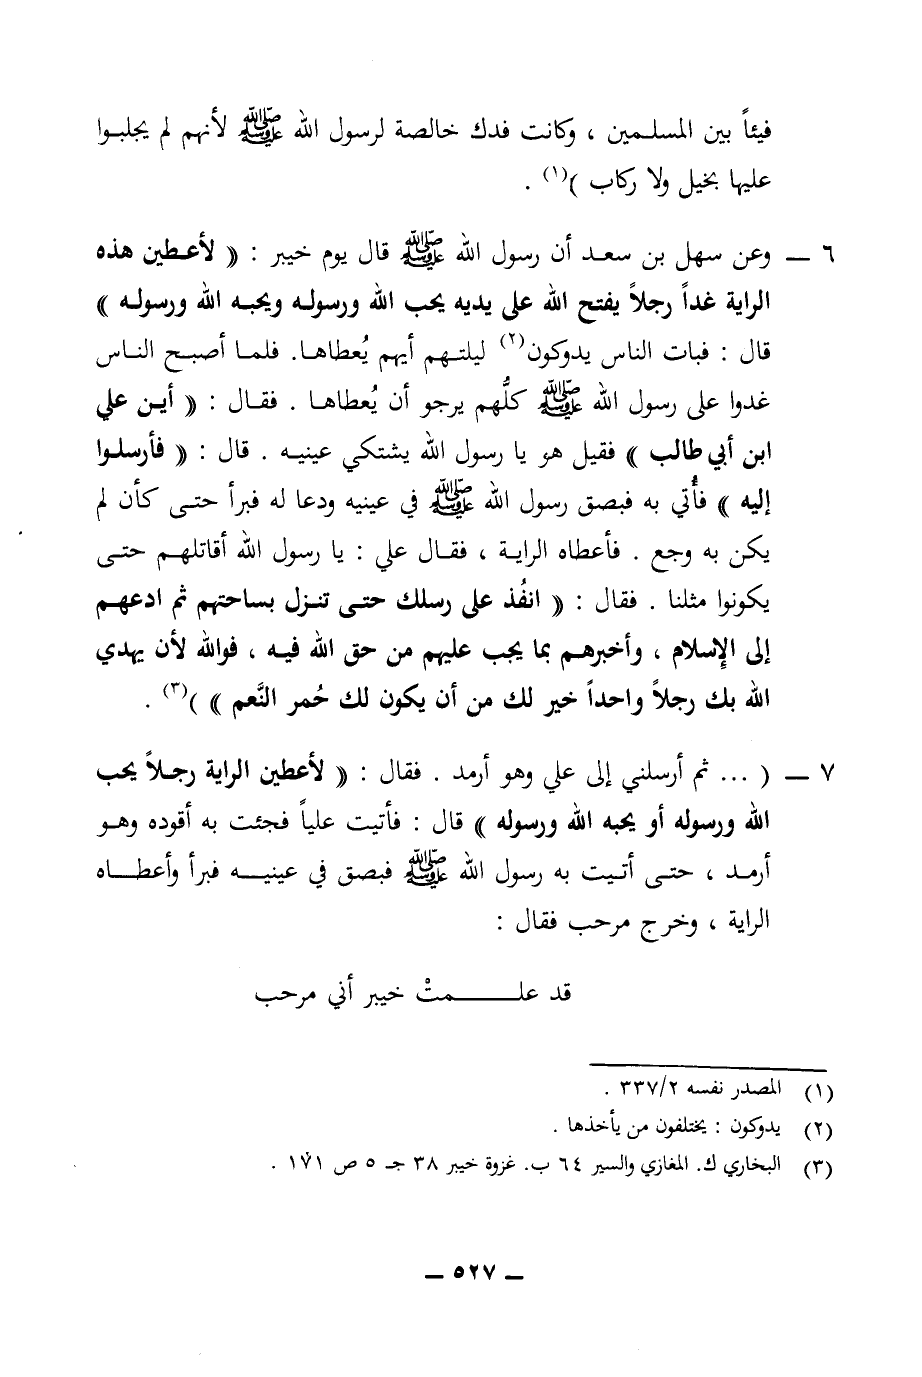 فيئاً بين المسلمين ، وكانت فدك خالصة لرسول الله ﷺ لأنهم لم يجلبوا
عليها بخيل ولا ركاب )(١) .
٦ — وعن سهل بن سعد أن رسول الله ﷺ قال يوم خيبر : « لأعطين هذه
الراية غداً رجلاً يفتح الله على يديه يحب الله ورسوله ويحبه الله ورسوله »
قال : فبات الناس يدوكون(٢) ليلتهم أيهم يُعطاها. فلما أصبح الناس
غدوا على رسول الله ﷺ كلُّهم يرجو أن يُعطاها . فقال : « أين علي
ابن أبي طالب » فقيل هو يا رسول الله يشتكي عينيه . قال : « فأرسلوا
إليه » فأُتي به فبصق رسول الله ﷺ في عينيه ودعا له فبرأ حتى كأن لم
يكن به وجع . فأعطاه الراية ، فقال علي : يا رسول الله أقاتلهم حتى
يكونوا مثلنا . فقال : « انفُذ على رسلك حتى تنزل بساحتهم ثم ادعهم
إلى الإسلام ، وأخبرهم بما يجب عليهم من حق الله فيه ، فوالله لأن يهدي
الله بك رجلاً واحداً خير لك من أن يكون لك حُمر النَّعم » )(٣) .
٧ — ( ... ثم أرسلني إلى علي وهو أرمد . فقال : « لأعطين الراية رجلاً يحب
الله ورسوله أو يحبه الله ورسوله » قال : فأتيت علياً فجئت به أقوده وهو
أرمد ، حتى أتيت به رسول الله ﷺ فبصق في عينيه فبرأ وأعطاه
الراية ، وخرج مرحب فقال :
قد علمتْ خيبر أني مرحب
(١) المصدر نفسه ٣٣٧/٢ .
(٢) يدوكون : يختلفون من يأخذها .
(٣) البخاري ك. المغازي والسير ٦٤ ب. غزوة خيبر ٣٨ جـ ٥ ص ١٧١ .
— ٥٢٧ —